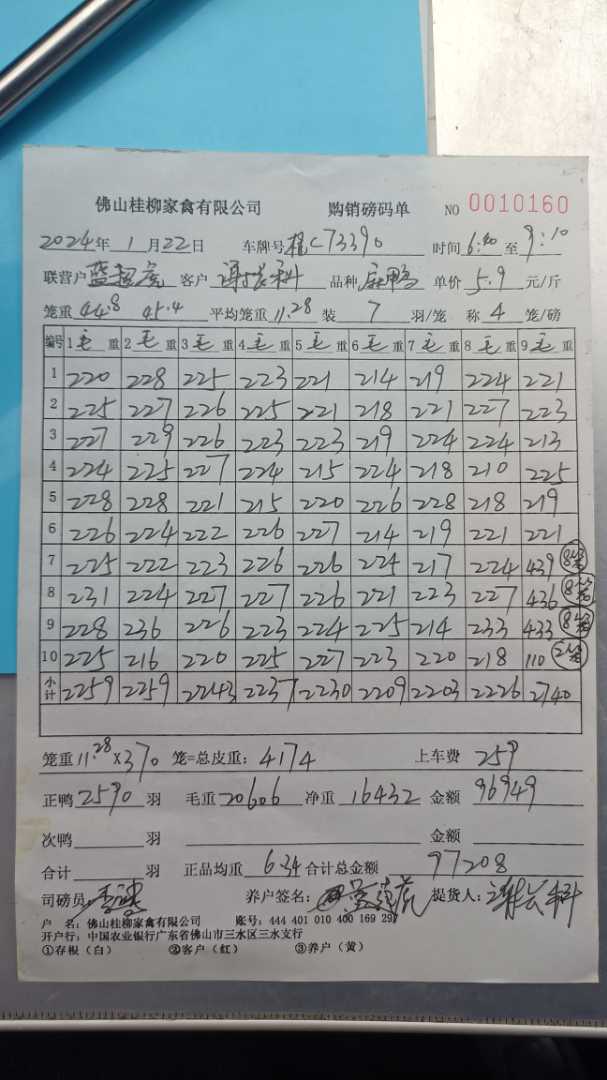 佛山桂柳家禽有限公司 购销磅码单 NO 0010160
2024年 1 月 22日 车牌号 桂C73390 时间 6:40 至 9:10
联营户 蓝超虎 客户 品种 麻鸭 单价 5.9 元/斤
笼重 44.8 45.4 平均笼重 11.28 装 7 羽/笼 称 4 笼/磅
编号 1 毛 重 2 毛 重 3 毛 重 4 毛 重 5 毛 重 6 毛 重 7 毛 重 8 毛 重 9 毛 重
1 220 228 225 223 221 214 219 224 221
2 225 227 226 225 221 218 221 227 223
3 227 229 226 223 223 219 224 224 213
4 224 225 227 224 215 224 218 210 225
5 228 228 221 215 220 226 228 218 219
6 226 224 222 226 227 214 219 221 221
7 225 222 223 226 226 224 217 224 439 8笼
8 231 224 227 227 226 221 223 227 436 8笼
9 228 236 226 223 224 225 214 233 433 8笼
10 225 216 220 225 227 223 220 218 110 2笼
小计 2259 2259 2243 2237 2230 2209 2203 2226 2740
笼重 11.28 ×370 笼=总皮重: 4174 上车费 259
正鸭 2590 羽 毛重 20606 净重 16432 金额 96949
次鸭 羽 金额
合计 羽 正品均重 6.34 合计总金额 97208
司磅员: 养户签名: 提货人:
户 名: 佛山桂柳家禽有限公司 账号: 444 401 010 400 169 297
开户行: 中国农业银行广东省佛山市三水区三水支行
①存根（白） ②客户（红） ③养户（黄）